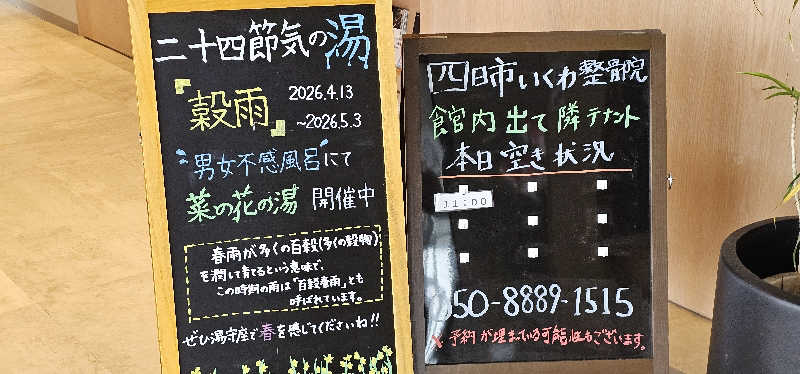 二十四節気の湯
『穀雨』
2026.4.13
~2026.5.3
男女不感風呂にて
菜の花の湯 開催中
春雨が多くの百穀(多くの穀物)
を潤して育てるという意味で、
この時期の雨は「百穀春雨」とも
呼ばれています。
ぜひ湯守座で春を感じてくださいね!!
四日市いくわ整骨院
館内出て隣テナント
本日空き状況
11:00
050-8889-1515
予約が埋まっている可能性もございます。